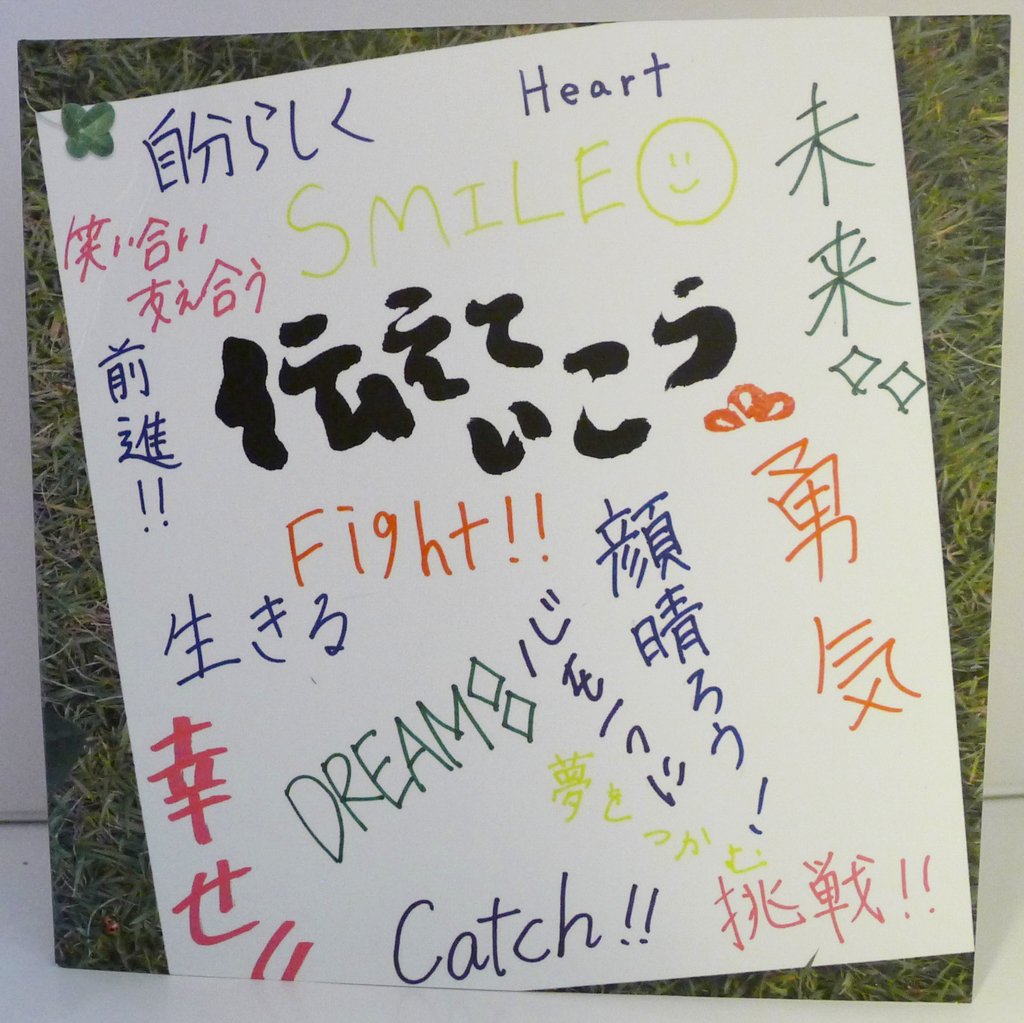 自分らしく
Heart
SMILE
未来
笑い合い
支え合う
伝えて
いこう
前進!!
勇気
Fight!!
顔晴ろう!
心を1つに
生きる
DREAM
夢をつかむ
幸せ!!
Catch!!
挑戦!!